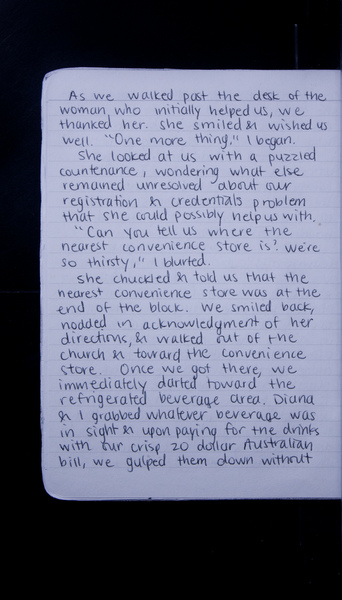 As we walked past the desk of the
woman who initially helped us, we
thanked her. She smiled & wished us
well. "One more thing," I began.
She looked at us with a puzzled
countenance, wondering what else
remained unresolved about our
registration & credentials problem
that she could possibly help us with.
"Can you tell us where the
nearest convenience store is? We're
so thirsty," I blurted.
She chuckled & told us that the
nearest convenience store was at the
end of the block. We smiled back,
nodded in acknowledgment of her
directions, & walked out of the
church & toward the convenience
store. Once we got there, we
immediately darted toward the
refrigerated beverage area. Diana
& I grabbed whatever beverage was
in sight & upon paying for the drinks
with our crisp 20 dollar Australian
bill, we gulped them down without